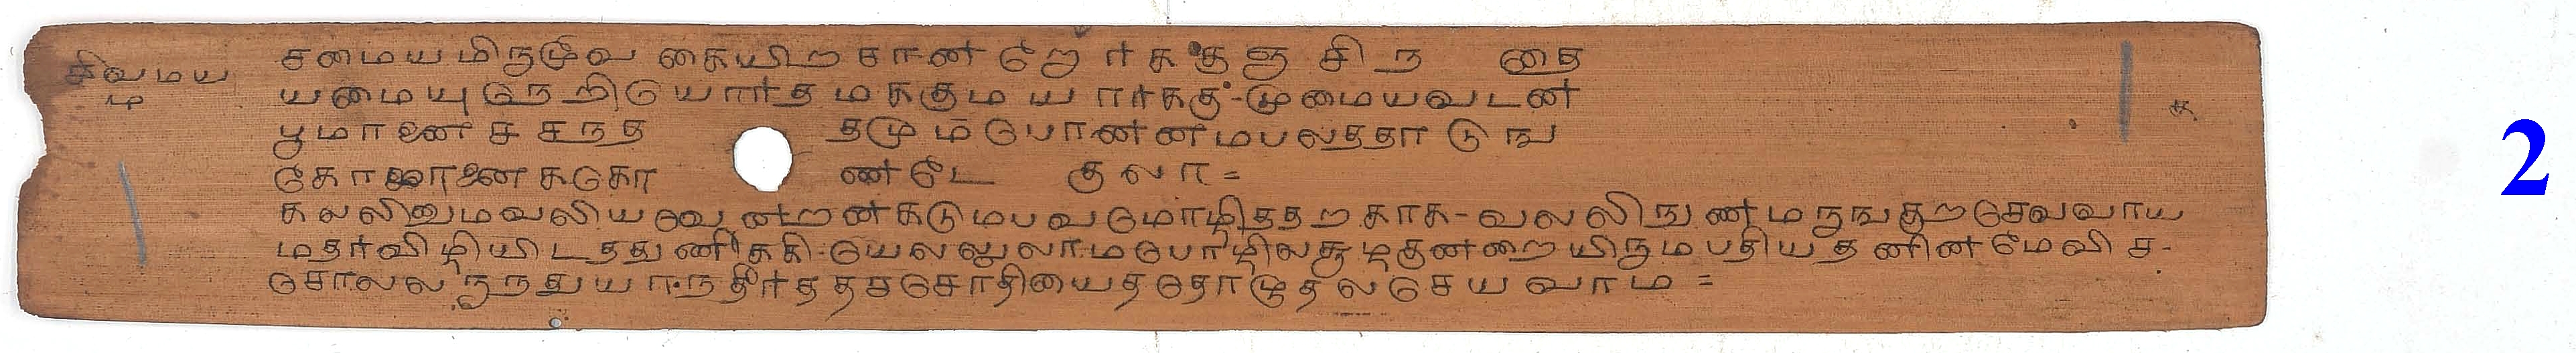 சிவமய
ம
சமையமிருமூவ கையிற சானறோர்க்கு ஞ சிந தை
யமையுநெறியொர்த மக்கும யார்க்கு-மூமையவடன
பூமானை ச சநத தமும பொன்னமபலத்தா டுங
கோமானை கூகொ ண்டே குலா=
கலலினுமவலியவேன்றன்கடுமபவமொழித்தற காக-வலலிருணமருங்குறசெவவாய
மதர்விழியிடத்துணீக்கி-யெலலுலாமபொழிலசூழகுன்றையிருமபதியதனின்மேவிச-
சொலலருந்துயாந்தீர்த்தசசொதியைத்தொழுதலசெயவாம=
க
2